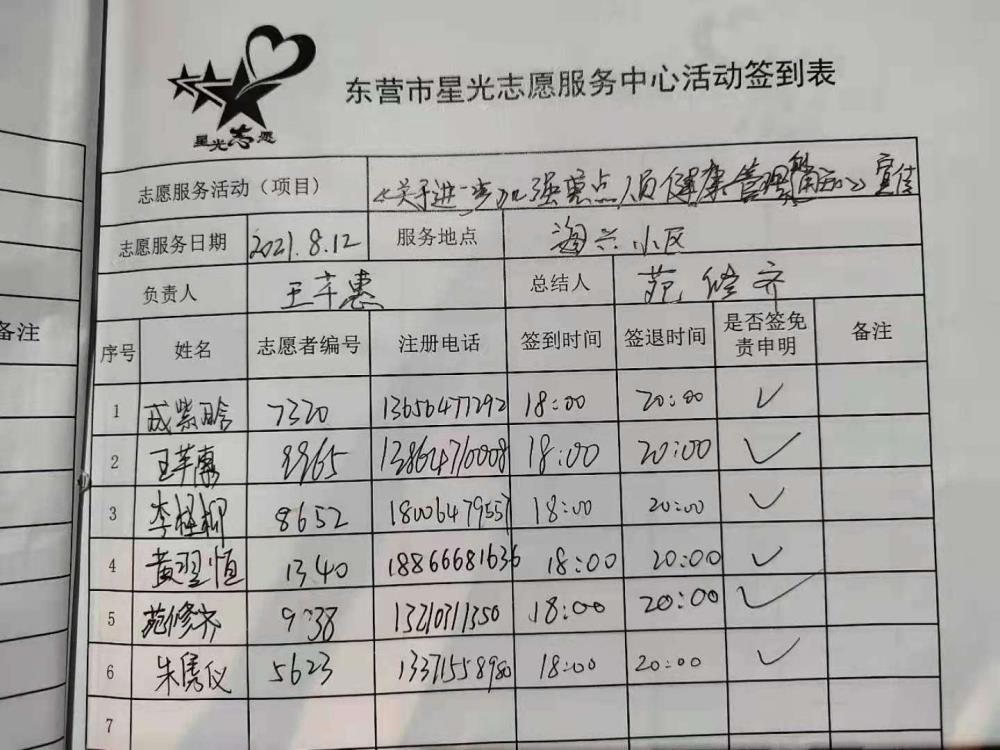 星光志愿
东营市星光志愿服务中心活动签到表
志愿服务活动（项目） 《关于进一步加强重点人员健康管理的通知》宣传
志愿服务日期 2021.8.12 服务地点 海兴小区
负责人 王芊惠 总结人 苑修齐
序号 姓名 志愿者编号 注册电话 签到时间 签退时间 是否签免责申明 备注
1 成紫晗 7320 13656477292 18:00 20:00 ✓
2 王芊惠 9965 13864710008 18:00 20:00 ✓
3 李桂柳 8652 18006479557 18:00 20:00 ✓
4 黄翌恒 1340 18866681636 18:00 20:00 ✓
5 苑修齐 9738 13210711350 18:00 20:00 ✓
6 朱隽仪 5623 13371558980 18:00 20:00 ✓
7
备注